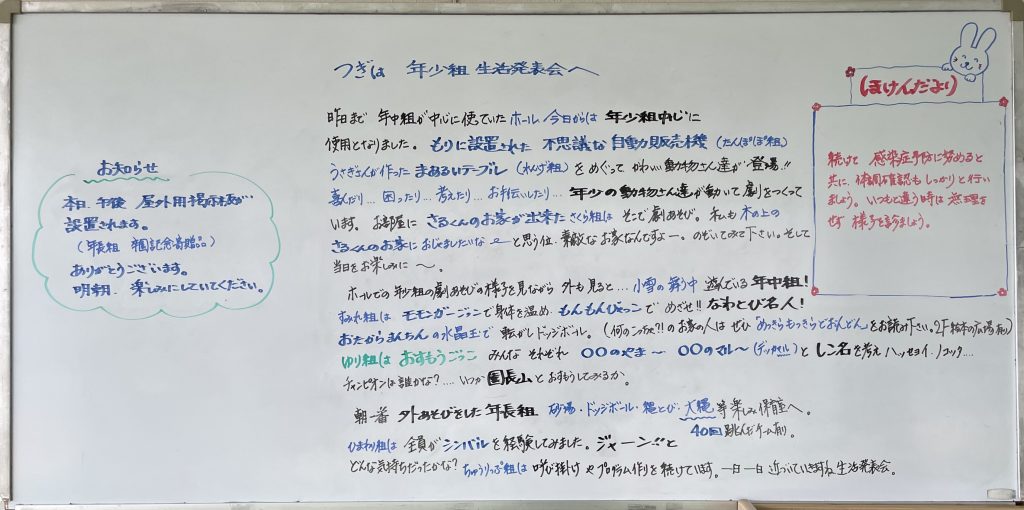 お知らせ
本日 午後 屋外用掲示板が…
設置されます。
(年長組 卒園記念寄贈品)
ありがとうございます。
明朝、楽しみにしていてください。
つぎは 年少組 生活発表会へ
昨日まで 年中組が中心に使っていた ホール 今日からは 年少組中心に
使用となりました。もりに設置された 不思議な 自動販売機 (たんぽぽ組)
うさぎさんが作った まあるいテーブル (れんげ組) をめぐって かわいい動物さん達が…登場!!
喜んだり… 困ったり… 考えたり… お手伝いしたり… 年少の動物さん達が動いて劇をつくって
います。お部屋に さるくんのお家が出来た さくら組は そこで劇あそび。私も 木の上の
さるくんのお家に おじゃましたいなぁーと思う位、素敵なお家なんですよー。のぞいてみて下さい。そして
当日をお楽しみに〜。
ホールでの年少組の劇あそびの様子を見ながら 外も見ると… 小雪の舞う中 遊んでいる 年中組!
すみれ組は モモンガーごっこで身体を温め、もんもんびゃっこで めざせ!! なわとび名人!
おたからまんちんの水晶玉で 転がしドッジボール。(何のこっちゃ?!のお家の人は ぜひ「めっきらもっきらどおんどん」をお読み下さい。2F 絵本の広場有り)
ゆり組は おすもうごっこ みんな それぞれ 〇〇のやま〜 〇〇のマル〜 (デッカマル) と しこ名を考え ハッケヨイ、ノコッタ….
チャンピオンは誰かな?…. いつか 園長山とおすもうしてみるか。
朝一番 外あそびをした 年長組 砂場・ドッジボール・縄とび・大縄 等楽しみ保育室へ。
40回跳んだチーム有り。
ひまわり組は 全員が シンバルを経験してみました。ジャーン!!と
どんな気持ちだったかな? ちゅうりっぷ組は 呼び掛けやプログラム作りを続けています。一日一日 近づいていきますね 生活発表会。
ほけんだより
続けて 感染症予防に努めると
共に、体調確認も しっかりと行い
ましょう。いつもと違う時は 無理を
せず 様子を診ましょう。